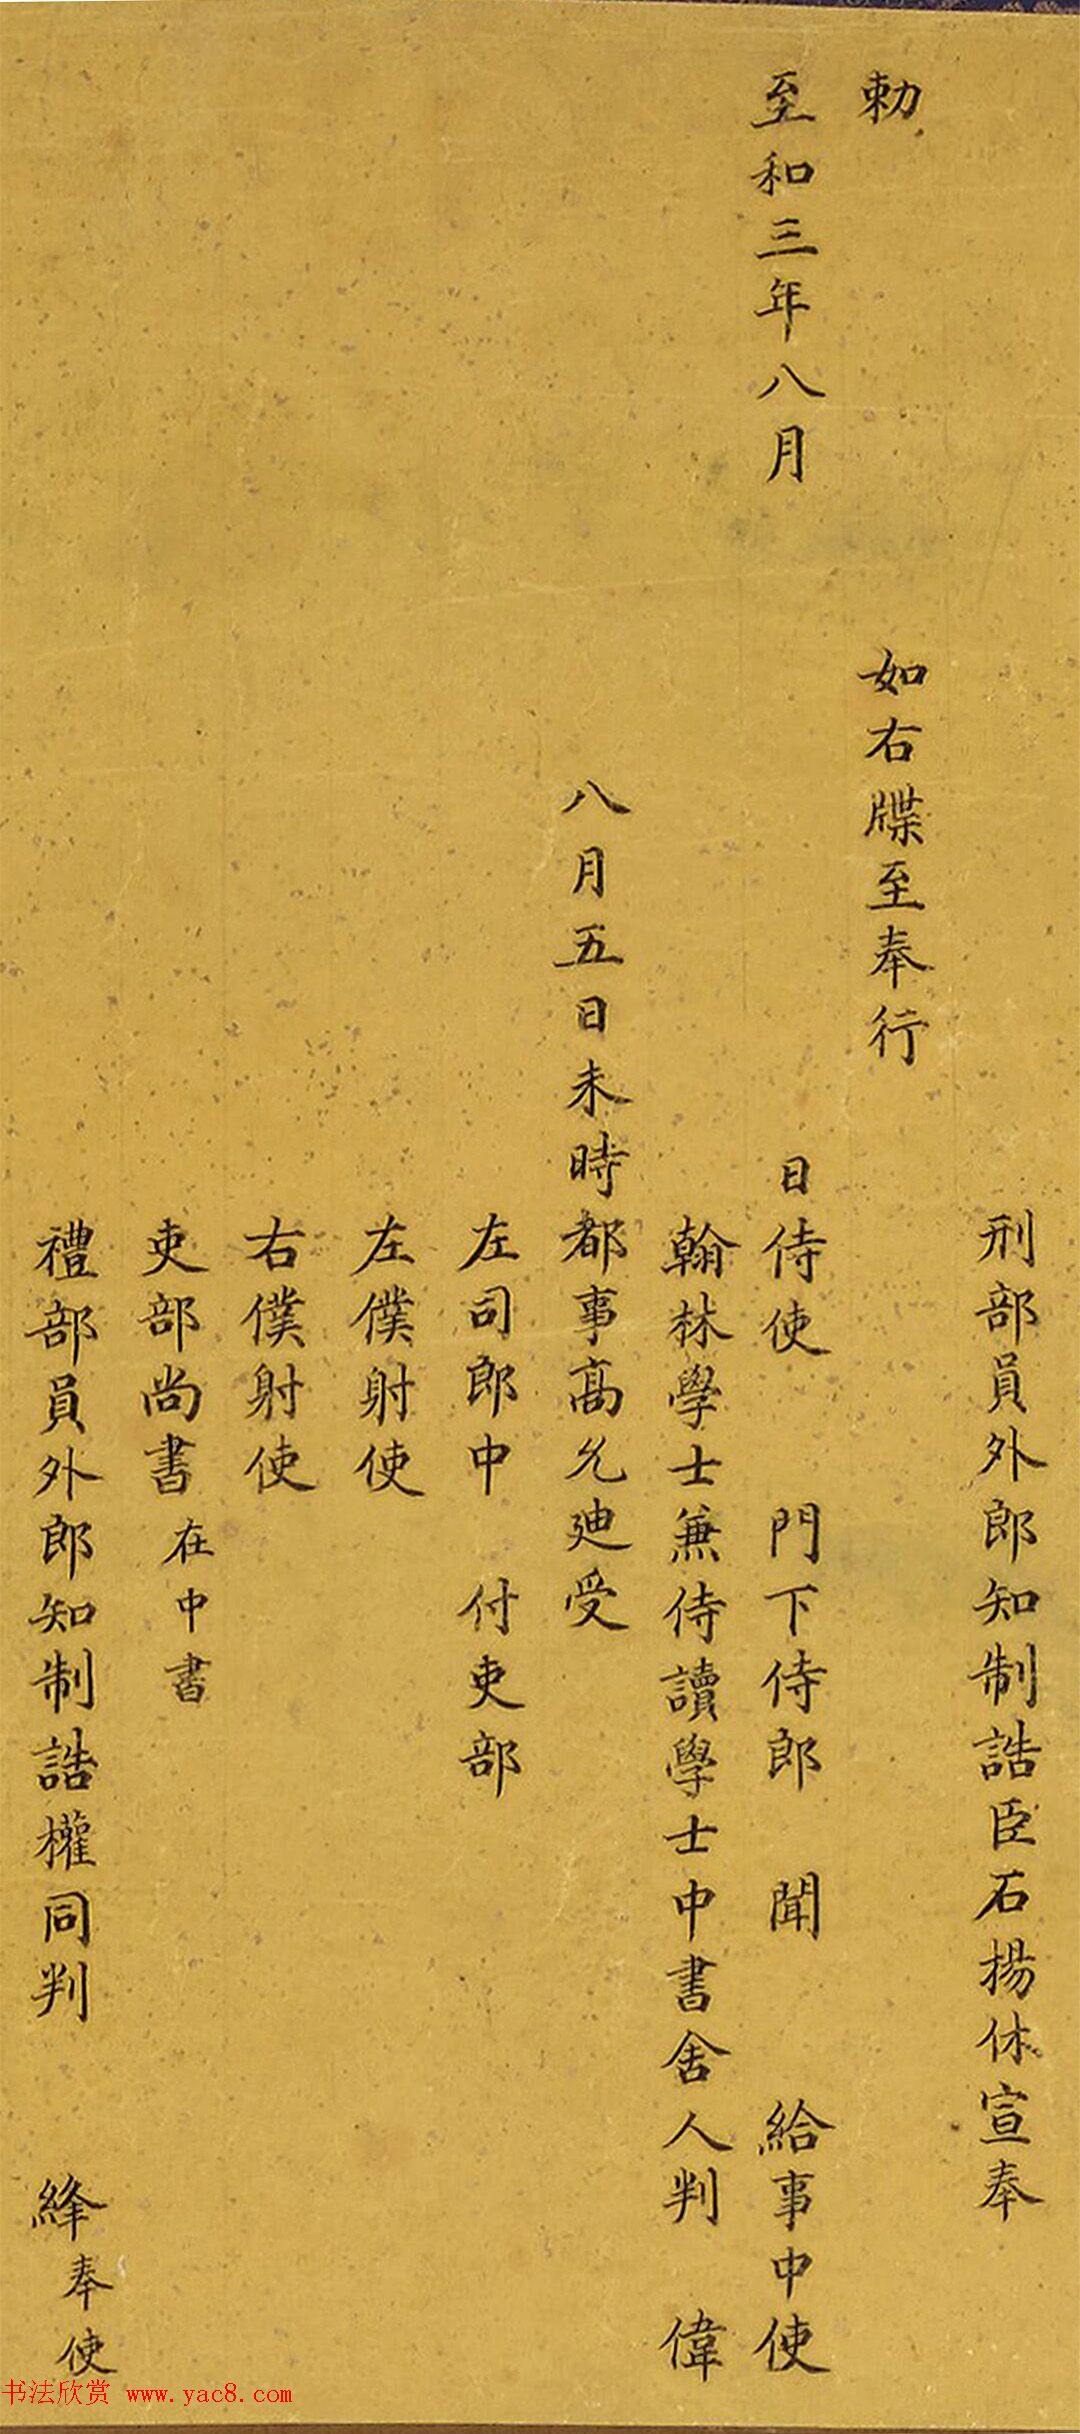 刑部員外郎知制誥臣石揚休宣奉
勅
如右牒至奉行
至和三年八月 日侍使 門下侍郎 聞 給事中使
翰林學士兼侍讀學士中書舍人判 偉
八月五日未時都事髙允廸受
左司郎中 付吏部
左僕射使
右僕射使
吏部尚書在中書
禮部員外郎知制誥權同判 絳奉使
书法欣赏 www.yac8.com